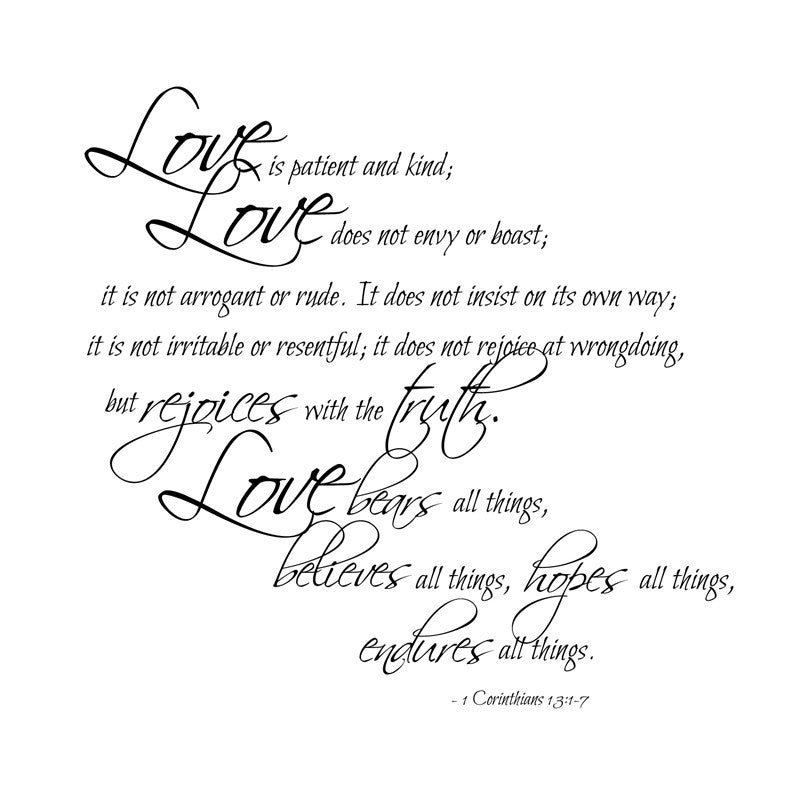 Love is patient and kind;
Love does not envy or boast;
it is not arrogant or rude. It does not insist on its own way;
it is not irritable or resentful; it does not rejoice at wrongdoing,
but rejoices with the truth.
Love bears all things,
believes all things, hopes all things,
endures all things.
- 1 Corinthians 13:1-7